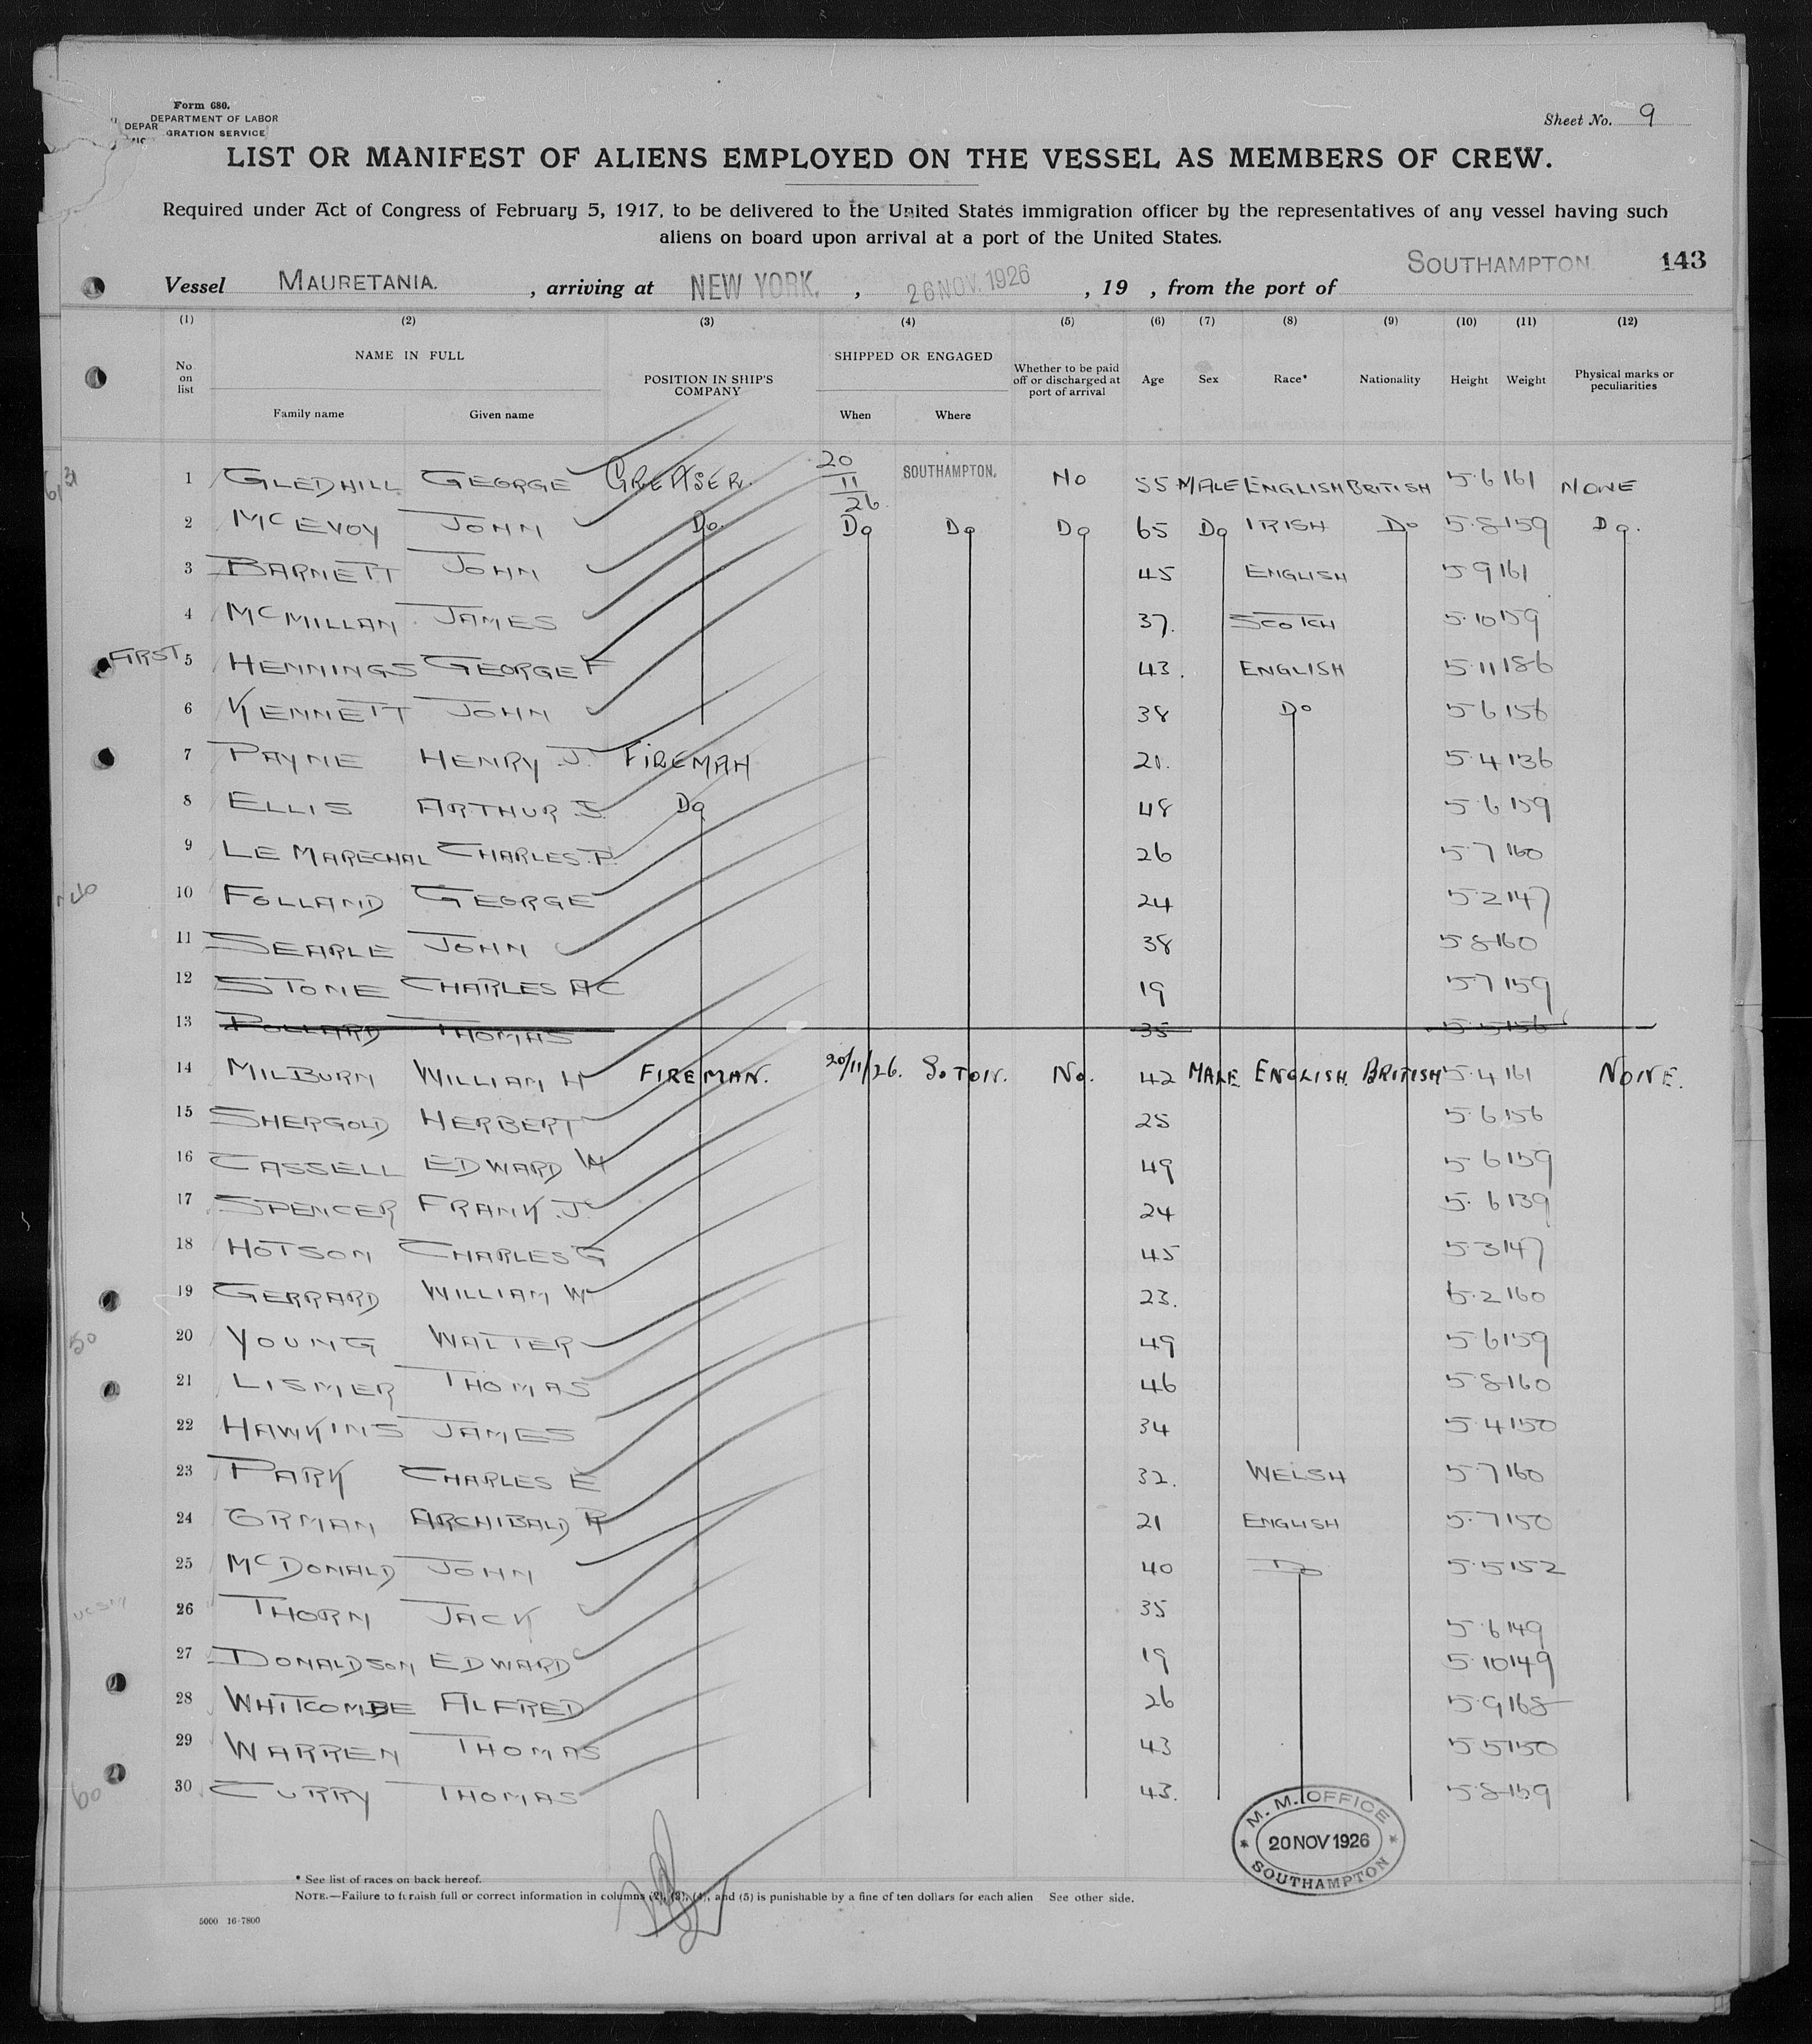 Form 680.
DEPARTMENT OF LABOR
DEPAR GRATION SERVICE
Sheet No. 9
LIST OR MANIFEST OF ALIENS EMPLOYED ON THE VESSEL AS MEMBERS OF CREW.
Required under Act of Congress of February 5, 1917, to be delivered to the United States immigration officer by the representatives of any vessel having such
aliens on board upon arrival at a port of the United States.
143
Vessel MAURETANIA. , arriving at NEW YORK. , 26 NOV. 1926 , 19 , from the port of SOUTHAMPTON.
(1) (2) (3) (4) (5) (6) (7) (8) (9) (10) (11) (12)
No. on list NAME IN FULL Family name Given name POSITION IN SHIP'S COMPANY SHIPPED OR ENGAGED When Where Whether to be paid off or discharged at port of arrival Age Sex Race* Nationality Height Weight Physical marks or peculiarities
1 GLEDHILL GEORGE GREASER. 20/11/26 SOUTHAMPTON. NO 55 MALE ENGLISH BRITISH 5.6 161 NONE
2 McEVOY JOHN Do. Do Do Do 65 Do IRISH Do 5.8 159 Do.
3 BARNETT JOHN 45 ENGLISH 5 9 161
4 McMILLAN JAMES 37. SCOTCH 5.10 159
FIRST 5 HENNINGS GEORGE F 43. ENGLISH 5.11 186
6 KENNETT JOHN 38 Do 5 6 158
7 PAYNE HENRY J. FIREMAN 21. 5.4 136
8 ELLIS ARTHUR J. Do 48 5.6 159
9 LE MARECHAL CHARLES.P. 26 5.7 160
10 FOLLAND GEORGE 24 5.2 147
11 SEARLE JOHN 38 5 8 160
12 STONE CHARLES AC 19 5.7 159
13 POLLARD THOMAS 35 5.5 156
14 MILBURN WILLIAM H FIREMAN. 20/11/26. So TON. No. 42 MALE ENGLISH. BRITISH 5.4 161 NONE.
15 SHERGOLD HERBERT 25 5.6 156
16 CASSELL EDWARD W 49 5 6 159
17 SPENCER FRANK.J. 24 5. 6 139
18 HOTSON CHARLES G 45 5.3 147
19 GERRARD WILLIAM W 23. 5.2 160
50
20 YOUNG WALTER 49 5.6 159
21 LISMER THOMAS 46 5.8 160
22 HAWKINS JAMES 34 5.4 150
23 PARK CHARLES E 32. WELSH 5.7 160
24 ORMAN ARCHIBALD R 21 ENGLISH 5.7 150
25 McDONALD JOHN 40 Do 5.5 152
26 THORN JACK 35 5.6 149
27 DONALDSON EDWARD 19 5.10 149
28 WHITCOMBE ALFRED 26 5.9 168
29 WARREN THOMAS 43 5 5 150
60 30 CURRY THOMAS 43. 5.8 159
M. M. OFFICE
20 NOV 1926
SOUTHAMPTON
* See list of races on back hereof.
NOTE.—Failure to furnish full or correct information in columns (2), (3), (4), and (5) is punishable by a fine of ten dollars for each alien See other side.
5000 16-7800